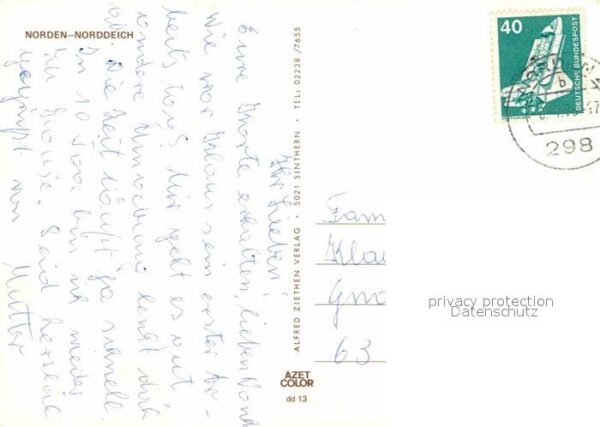 NORDEN—NORDDEICH
Ihr Lieben!
Eine Karte erhalten, lieben Dank
Wie war Klaus sein erster Ar-
beits Tag? Mir geht es gut
andere Umgebung lenkt
Die Zeit läuft ja schnell
In 10 Tage bin ich wieder
zu Hause. Seid herzlich
gegrüßt von
Mutter
ALFRED ZIETHEN VERLAG • 5021 SINTHERN • TEL: 02238 /7655
AZET
COLOR
dd 13
40
DEUTSCHE BUNDESPOST
298
Fam
Klau
63
privacy protection
Datenschutz